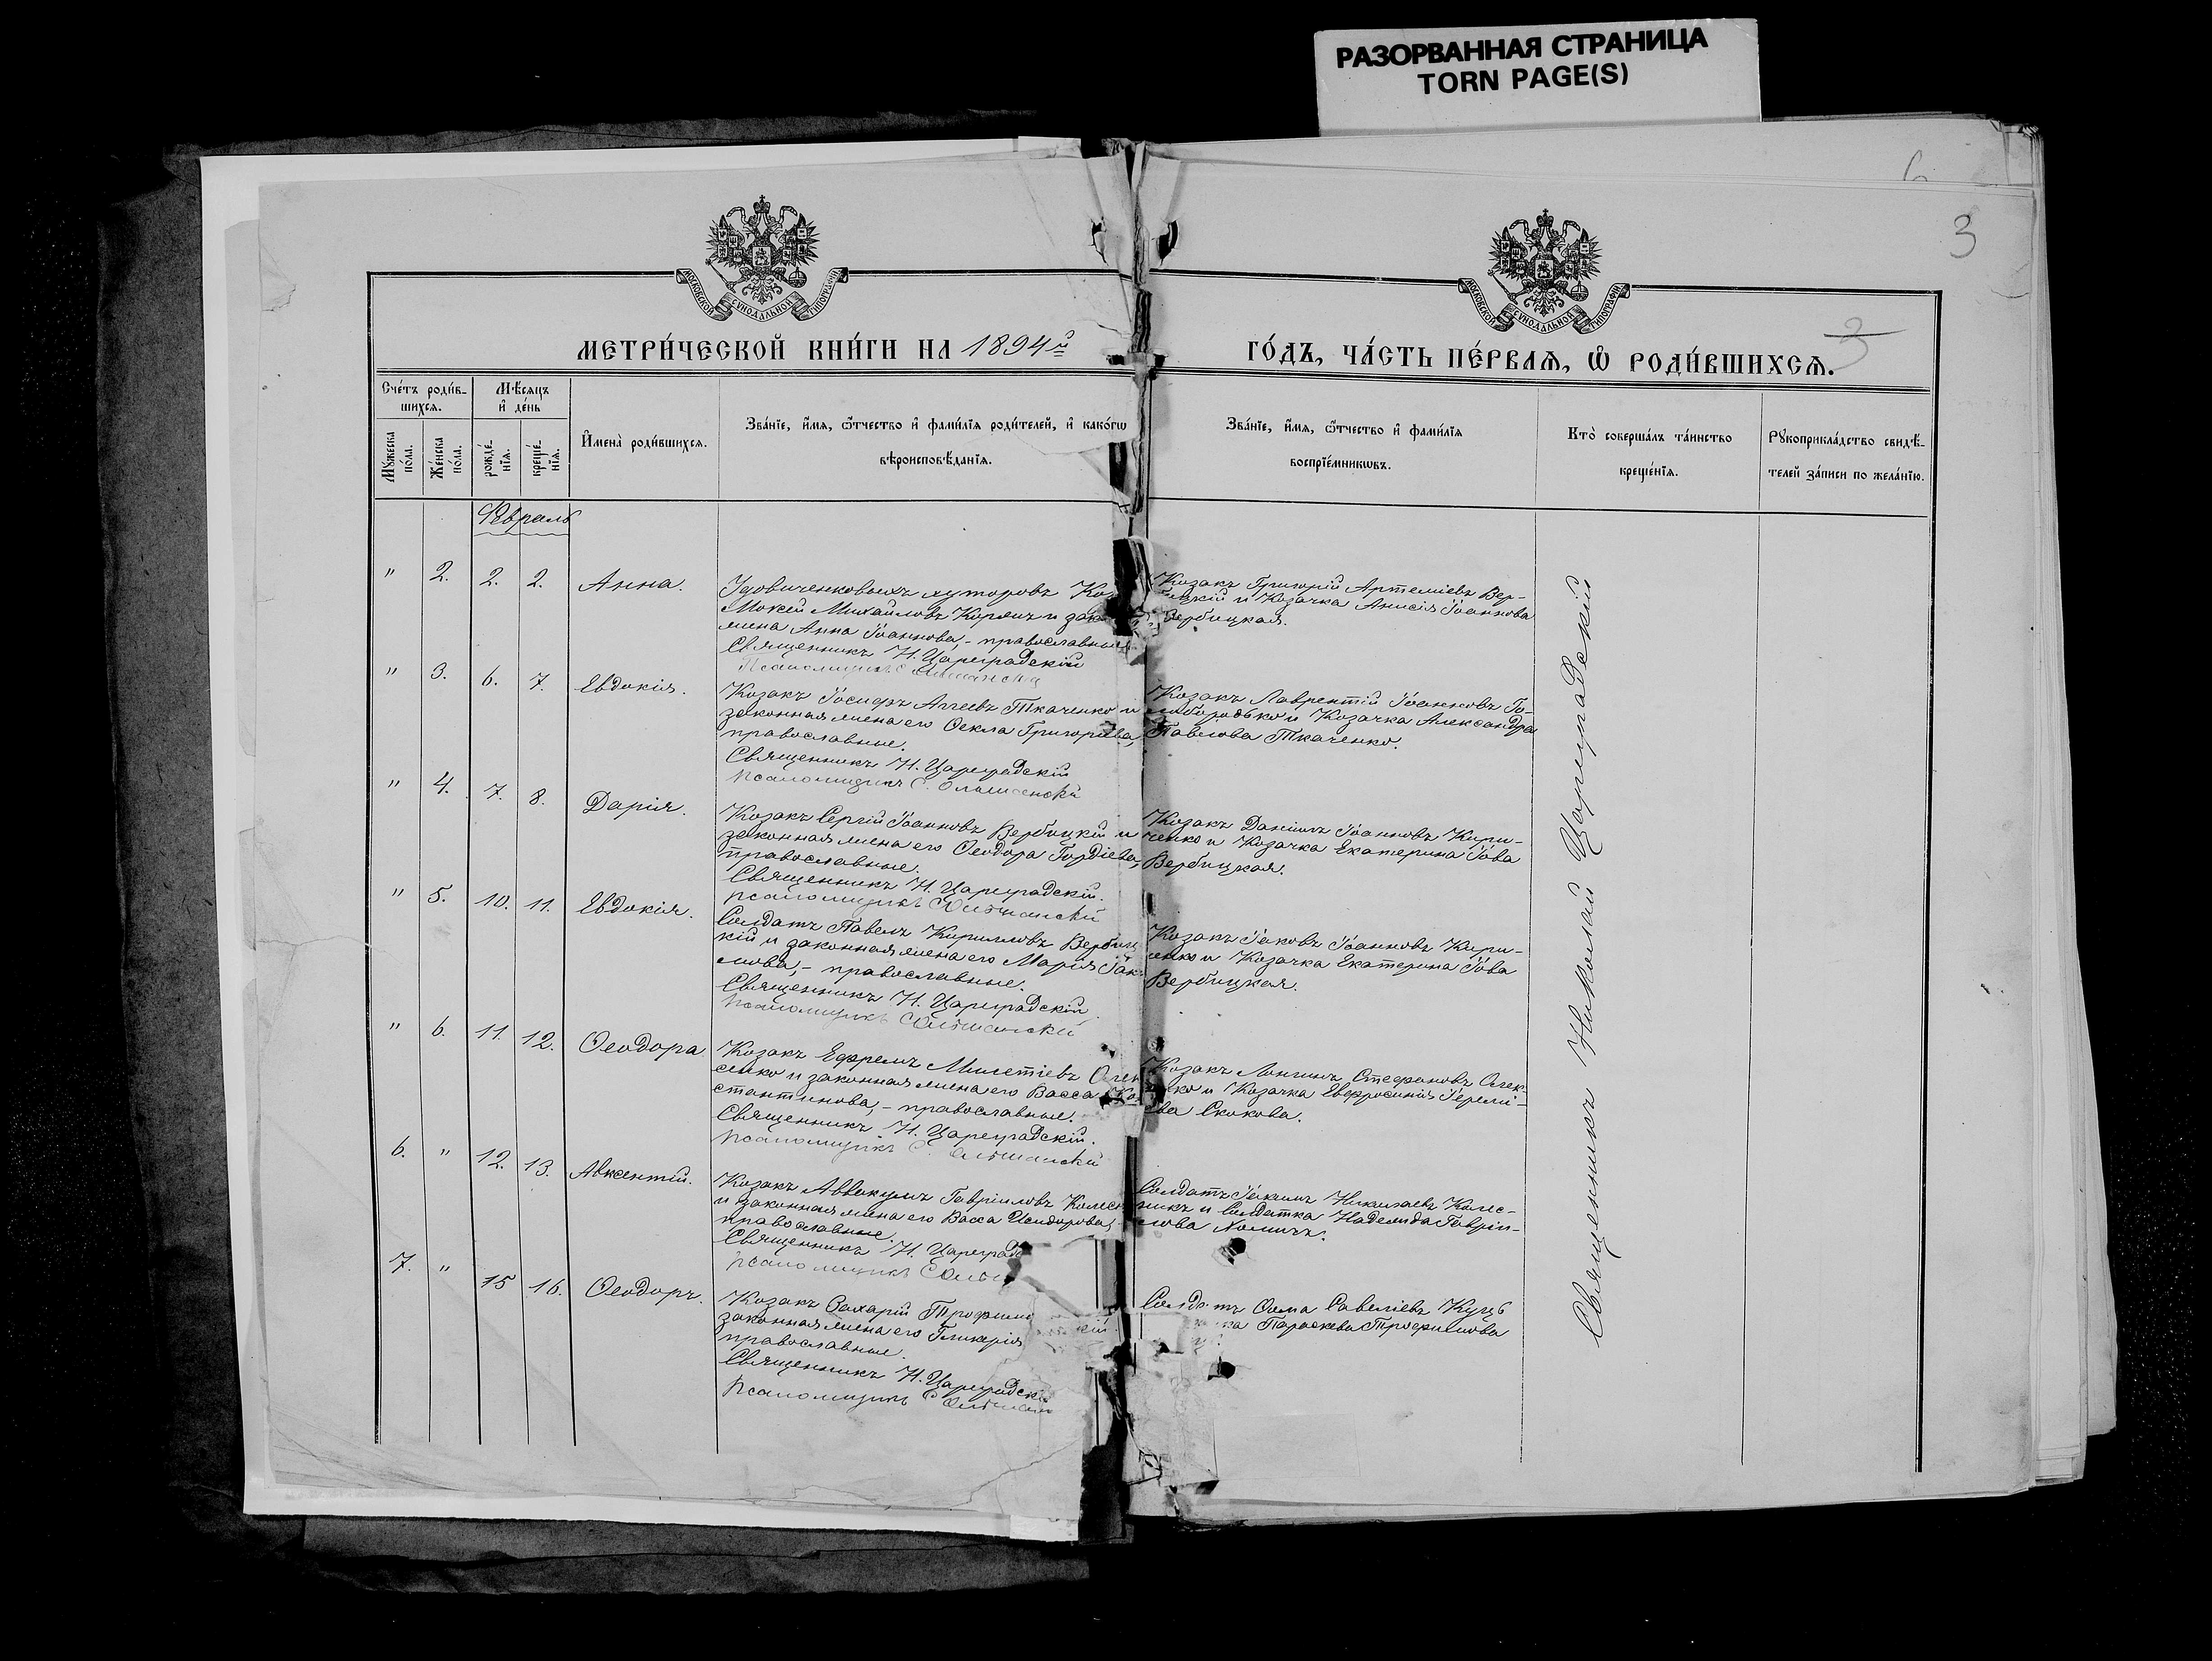 РАЗОРВАННАЯ СТРАНИЦА
TORN PAGE(S)
6
3
МОСКОВСКОЙ СѴНОДАЛЬНОЙ ТИПОГРАФІИ
МОСКОВСКОЙ СѴНОДАЛЬНОЙ ТИПОГРАФІИ
МЕТРИ́ЧЕСКОЙ КНИ́ГИ НА 1894й
ГО́ДЪ, ЧА́СТЬ ПЕ́РВАѦ, Ѡ҆ РОДИ́ВШИХСѦ.
3
Сче́тъ роди́в-
шихсѧ.
Мѣ́сѧцъ
и҆ де́нь
Мꙋ́жеска
по́ла.
Же́нска
по́ла.
рожде́-
нїѧ.
креще́-
нїѧ.
И҆мена̀ роди́вшихсѧ.
Зва́нїе, и҆́мѧ, ѻ҆́тчество и҆ фами́лїѧ роди́телей, и҆ како́гѡ
вѣроисповѣ́данїѧ.
Зва́нїе, и҆́мѧ, ѻ҆́тчество и҆ фами́лїѧ
воспрїе́мникѡвъ.
Кто̀ соверша́лъ та́инство
креще́нїѧ.
Рꙋкоприкла́дство свидѣ́-
телей за́писи по жела́нїю.
Февраль
" 2. 2. 2. Анна.
Удовиченковыхъ хуторовъ Ко
Мокей Михайловъ Корячъ и зако
жена Анна Іоаннова, - православные
Священникъ Н. Цареградскій
Козакъ Григорій Артеміевъ Вер-
бицкій и Козачка Анисія Іоаннова
Вербицкая.
" 3. 6. 7. Евдокія.
Козакъ Іосифъ Аггеевъ Ткаченко и
законная жена его Ѳекла Григорьева,
православные.
Священникъ Н. Цареградскій
Псаломщикъ С. Ольшанскій
Козакъ Лаврентій Іоанновъ Го-
лобородько и Козачка Александра
Павлова Ткаченко.
" 4. 7. 8. Дарія.
Козакъ Сергій Іоанновъ Вербицкій и
законная жена его Ѳеодора Гордіева,
православные.
Священникъ Н. Цареградскій.
Псаломщикъ С. Ольшанскій
Козакъ Даніилъ Іоанновъ Кири-
ченко и Козачка Екатерина Іова
Вербицкая.
" 5. 10. 11. Евдокія.
Солдатъ Павелъ Кирилловъ Вербиц
кій и законная жена его Марія Іак
лова, - православные.
Священникъ Н. Цареградскій.
Псаломщикъ С. Ольшанскій
Козакъ Іаковъ Іоанновъ Кири-
ченко и Козачка Екатерина Іова
Вербицкая.
" 6. 11. 12. Ѳеодора
Козакъ Ефремъ Милетіевъ Олек
сенко и законная жена его Васса Ко
стантинова, - православные.
Священникъ Н. Цареградскій.
Псаломщикъ С. Ольшанскій
Козакъ Лонгинъ Стефановъ Олек-
сенко и Козачка Евфросинія Іеремі-
ева Скокова.
6. " 12. 13. Авксентій.
Козакъ Аввакумъ Гавріиловъ Колесн
и законная жена его Васса Исидорова,
православные.
Священникъ Н. Цареград
Псаломщикъ С. Ольш
Солдатъ Іоакимъ Николаевъ Колес-
никъ и Солдатка Надежда Гавріи-
лова
7. " 15 16. Ѳеодоръ.
Козакъ Захарій Трофимо
законная жена его Гликерія
православные.
Священникъ Н. Цареградскі
Псаломщикъ С. Ольшанскі
Солдатъ Ѳома Савеліевъ Куцъ
ка Параскева Трофимова
Священникъ Николай Цареградскій